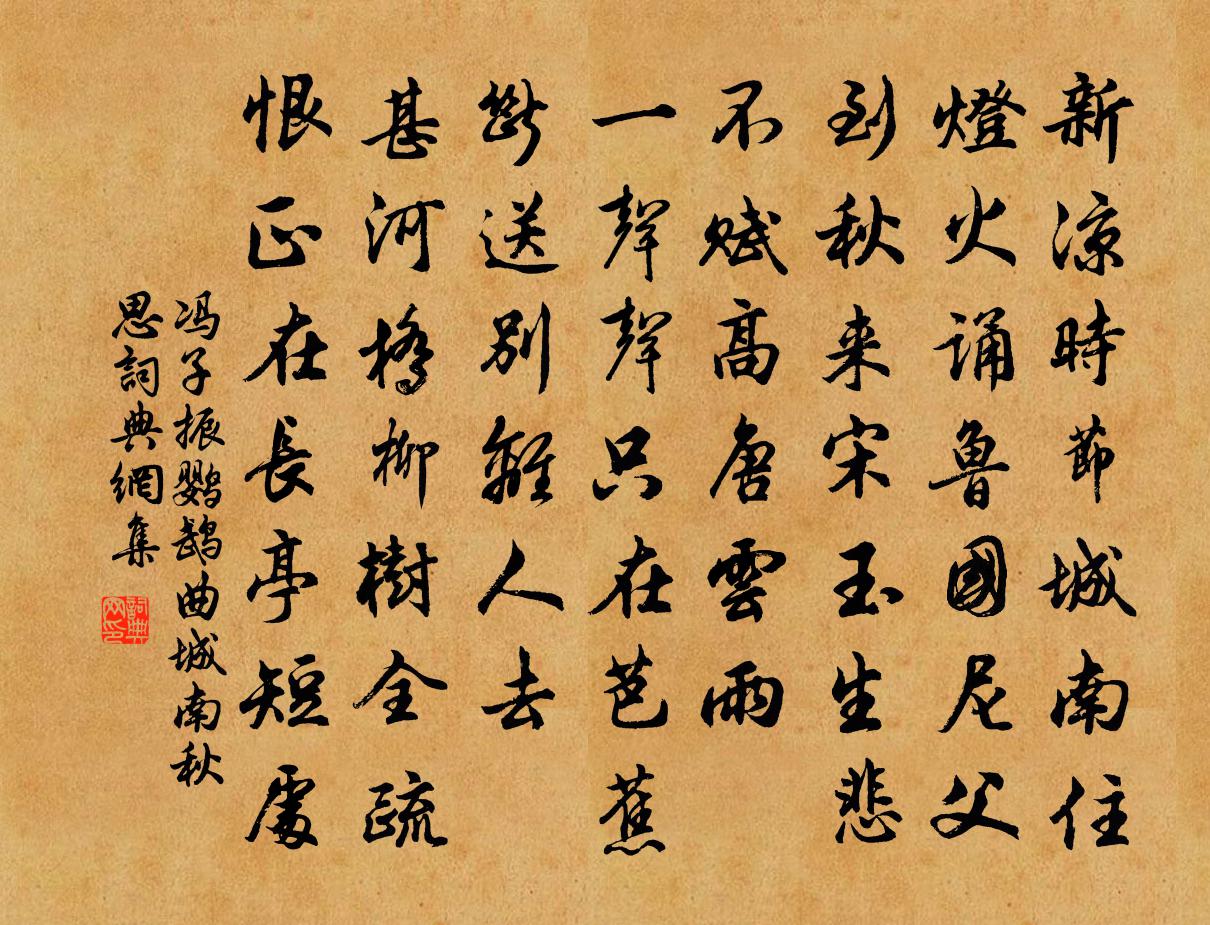 新涼時節城南住
燈火誦魯國尼父
到秋来宋玉生悲
不賦高唐雲雨
一聲聲只在芭蕉
斷送別離人去
甚河橋柳樹全疏
恨正在長亭短處
冯子振鹦鹉曲城南秋
思詞典網集
詞典网印